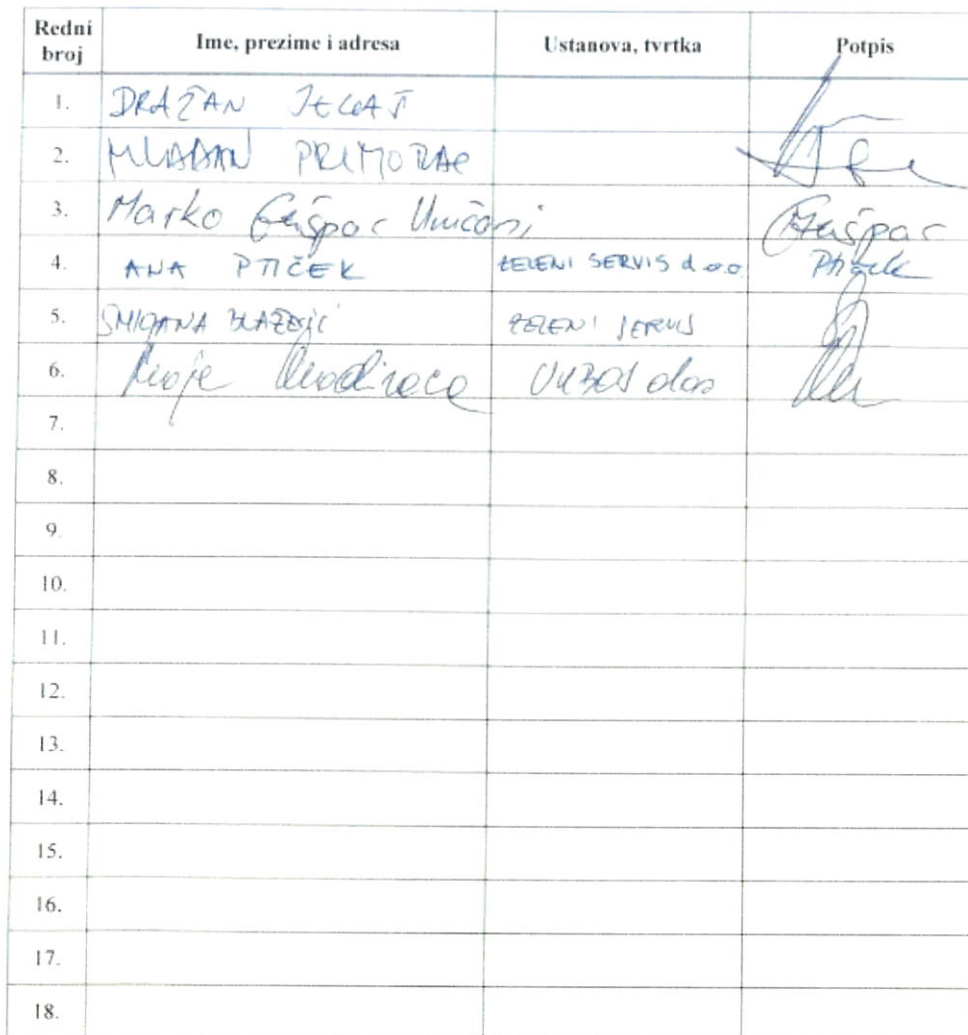 Redni broj Ime, prezime i adresa Ustanova, tvrtka Potpis
1. DRAŽAN JELAŠ
2. MLADAN PRIMORAC
3. Marko Gašpar Gašpar
4. ANA PTIČEK ZELENI SERVIS d.o.o. Ptiček
5. ZELENI SERVIS
6.
7.
8.
9.
10.
11.
12.
13.
14.
15.
16.
17.
18.